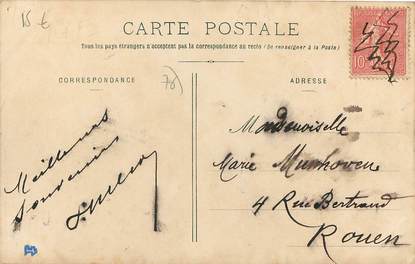 15 €
CARTE POSTALE
Tous les pays étrangers n'acceptent pas la correspondance au recto (Se renseigner à la Poste)
CORRESPONDANCE
(76)
ADRESSE
10
Meilleurs
souvenirs
Mademoiselle
Marie Munhoven
4 Rue Bertrand
Rouen